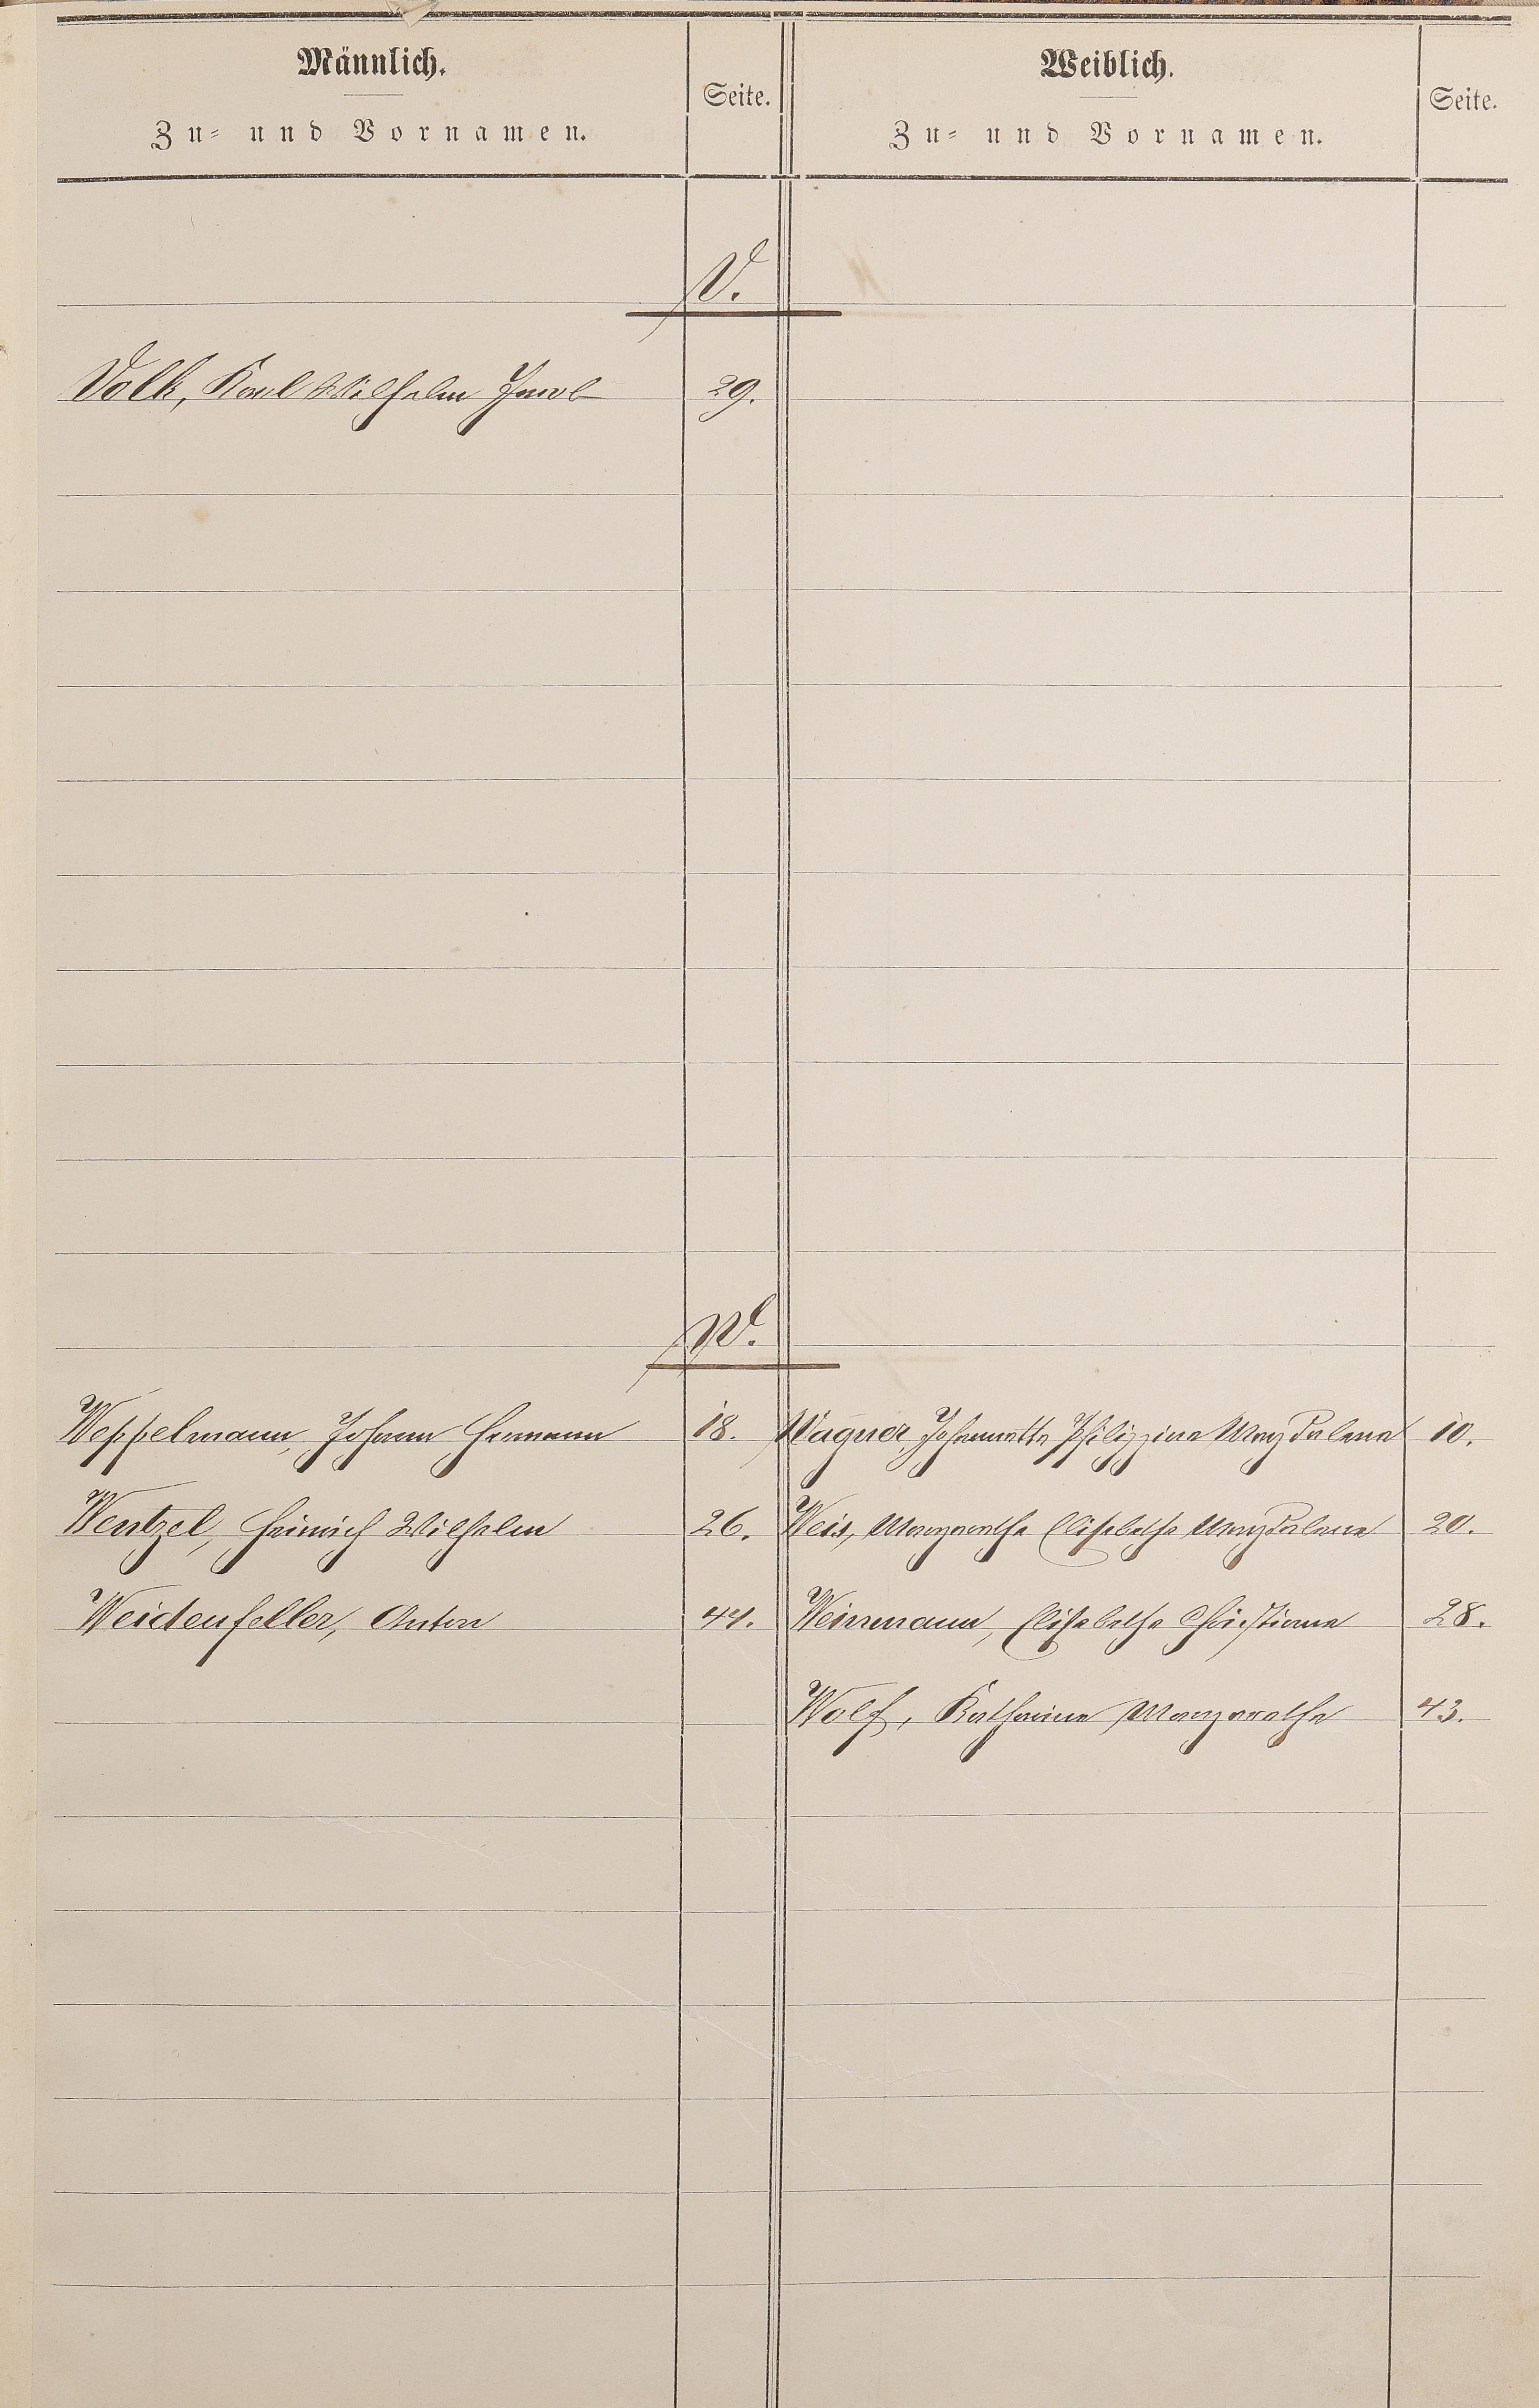 Männlich.
Zu- und Vornamen.
Seite.
Weiblich.
Zu- und Vornamen.
Seite.
V.
Volk, Karl Wilhelm Jacob 29.
W.
Weppelmann, Johann Hermann 18. Wagner, Johannette Philippine Magdalene 10.
Wentzel, Heinrich Wilhelm 26. Weis, Margarethe Elisabethe Magdalene 20.
Weidenfeller, Anton 44. Weinmann, Elisabethe Christiane 28.
Wolf, Katharine Margarethe 43.